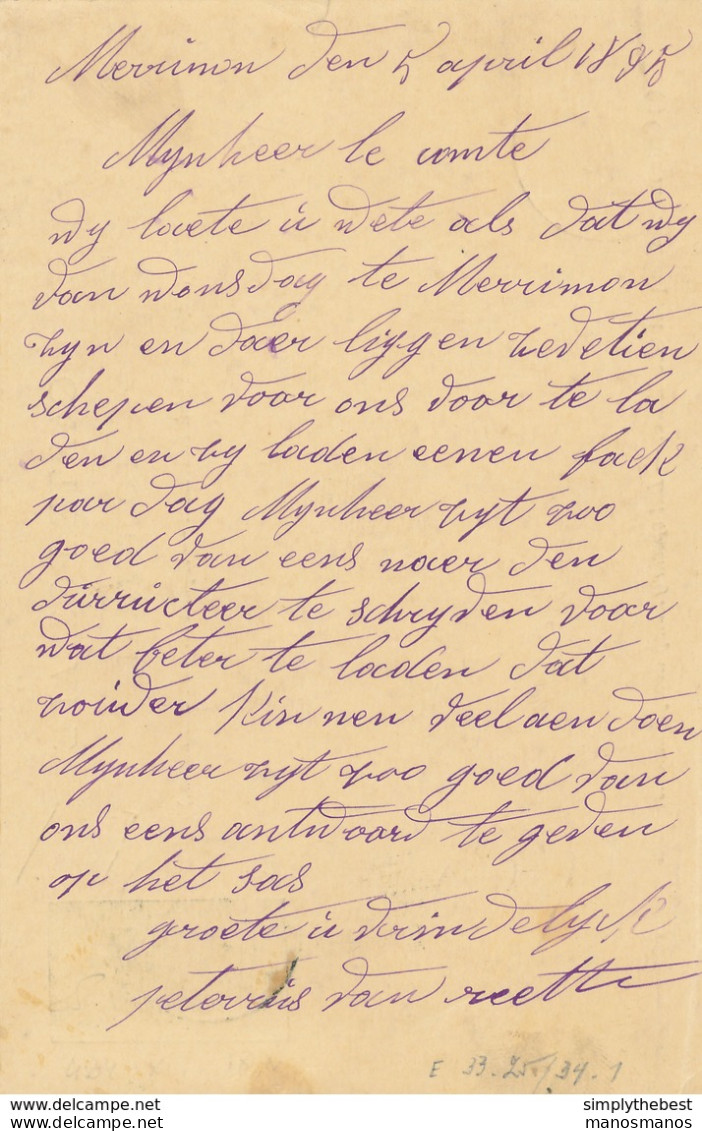 Merrimon den 5 april 1895
Mynheer le comte
wy laete u wete als dat wy
van wonsdag te Merrimon
zyn en daer liggen zevetien
schepen voor ons voor te la
den en zy laden eenen baek
par dag Mynheer zyt zoo
goed van eens naer den
durructeer te schryven voor
wat beter te laden dat
zoider kinnen veel aen doen
Mynheer zyt zoo goed van
ons eens antwoord te geven
op het sas
groete u vrindelyck
peterrus van reeth
E 33.25/34.1
simplythebest
manosmanos